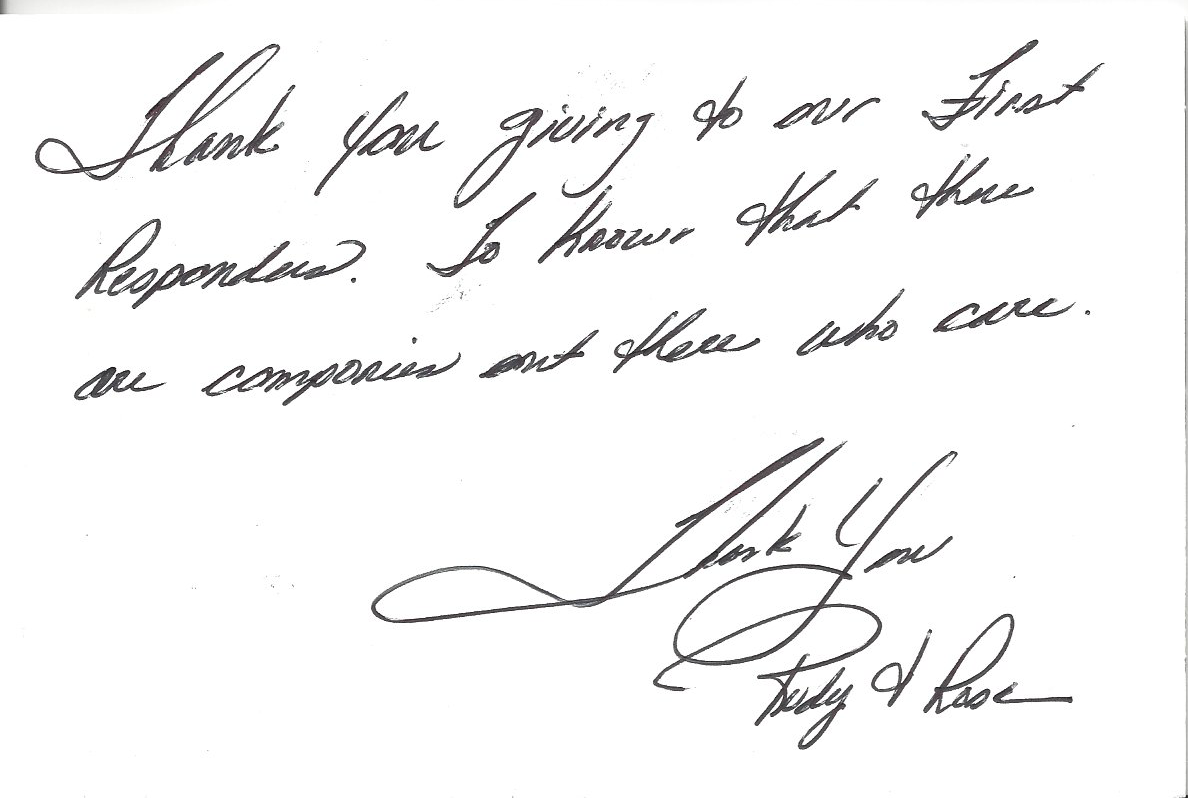 Thank you giving to our First
Responders. To know that there
are companies out there who care.
Thank You
Rudy & Rose